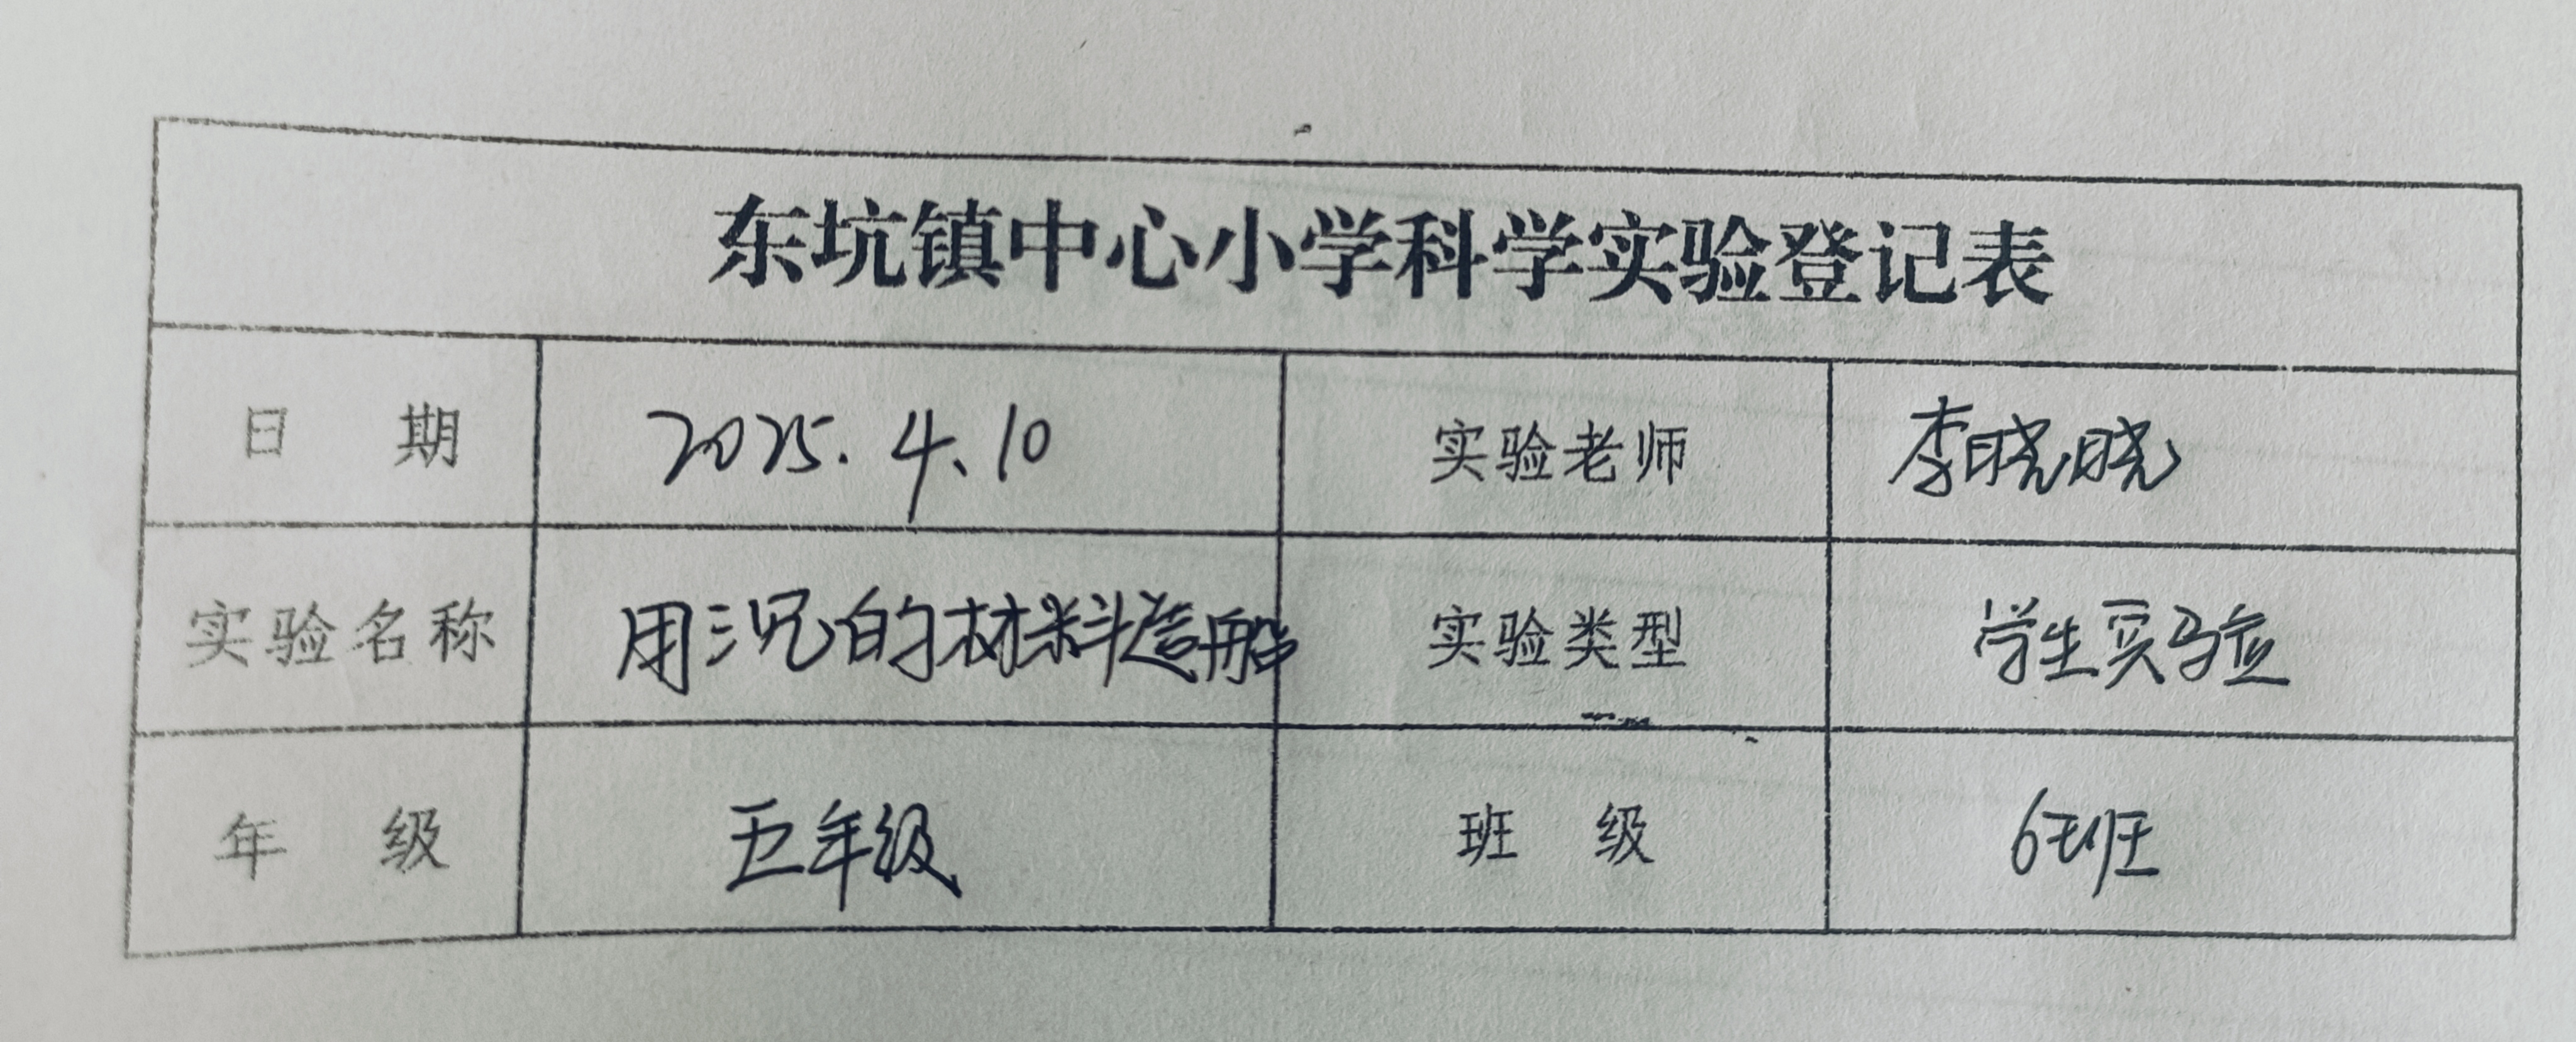 东坑镇中心小学科学实验登记表
日期 2025.4.10 实验老师 李晓晓
实验名称 用沉的材料造船 实验类型 学生实验
年级 五年级 班级 6班